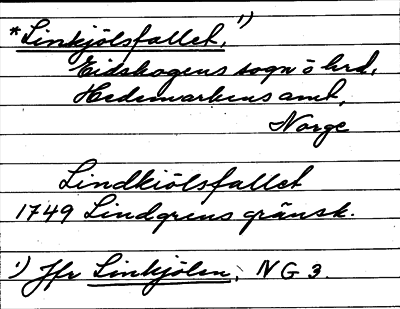 *Linkjölsfallet, 1)
Eidskogens sogn o hrd,
Hedemarkens amt,
Norge
Lindkiölsfallet
1749 Lindgrens gränsk.
1) Jfr Linkjölen, NG 3.